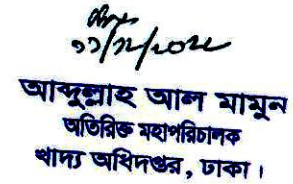 ১১/১২/২০২২
আব্দুল্লাহ আল মামুন
অতিরিক্ত মহাপরিচালক
খাদ্য অধিদপ্তর, ঢাকা।